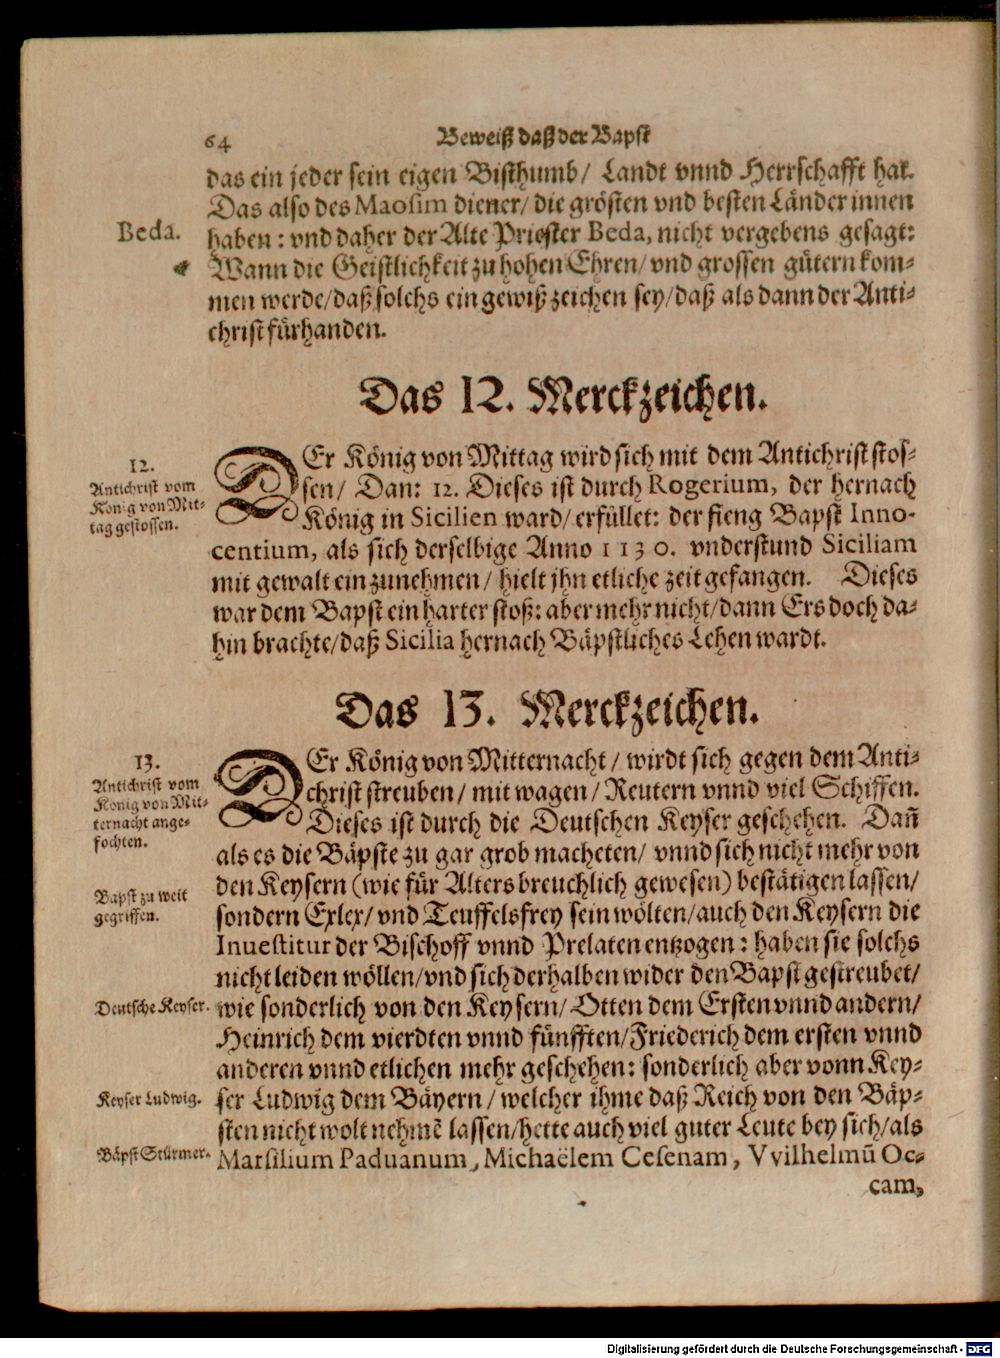 64
Beweiß daß der Bapst
das ein jeder sein eigen Bisthumb/ Landt vnnd Herrschafft hat.
Das also des Maosim diener/ die grösten vnd besten Länder innen
Beda.
haben: vnd daher der Alte Priester Beda, nicht vergebens gesagt:
Wann die Geistlichkeit zu hohen Ehren/ vnd grossen gütern kom-
men werde/ daß solchs ein gewiß zeichen sey/ daß als dann der Anti-
christ fürhanden.
Das 12. Merckzeichen.
12.
Antichrist vom
König von Mit-
tag gestossen.
DEr König von Mittag wird sich mit dem Antichrist stos-
sen/ Dan: 12. Dieses ist durch Rogerium, der hernach
König in Sicilien ward/ erfüllet: der fieng Bapst Inno-
centium, als sich derselbige Anno 1130. vnderstund Siciliam
mit gewalt einzunehmen/ hielt jhn etliche zeit gefangen. Dieses
war dem Bapst ein harter stoß: aber mehr nicht/ dann Ers doch da-
hin brachte/ daß Sicilia hernach Bäpstliches Lehen wardt.
Das 13. Merckzeichen.
13.
Antichrist vom
König von Mit-
ternacht ange-
fochten.
DEr König von Mitternacht/ wirdt sich gegen dem Anti-
christ streuben/ mit wagen/ Reutern vnnd viel Schiffen.
Dieses ist durch die Deutschen Keyser geschehen. Dañ
als es die Bäpste zu gar grob macheten/ vnnd sich nicht mehr von
Bapst zu weit
gegriffen.
den Keysern (wie für Alters breuchlich gewesen) bestätigen lassen/
sondern Exlex/ vnd Teuffelsfrey sein wölten/ auch den Keysern die
Inuestitur der Bischoff vnnd Prelaten entzogen: haben sie solchs
nicht leiden wöllen/ vnd sich derhalben wider den Bapst gestreubet/
Deutsche Keyser.
wie sonderlich von den Keysern/ Otten dem Ersten vnnd andern/
Heinrich dem vierdten vnnd fünfften/ Friederich dem ersten vnnd
anderen vnnd etlichen mehr geschehen: sonderlich aber vonn Key-
Keyser Ludwig.
ser Ludwig dem Bäyern/ welcher ihme daß Reich von den Bäp-
sten nicht wolt nehmẽ lassen/ hette auch viel guter Leute bey sich/ als
Bäpst Stürmer.
Marsilium Paduanum, Michaëlem Cesenam, Vvilhelmũ Oc-
cam,
Digitalisierung gefördert durch die Deutsche Forschungsgemeinschaft - DFG